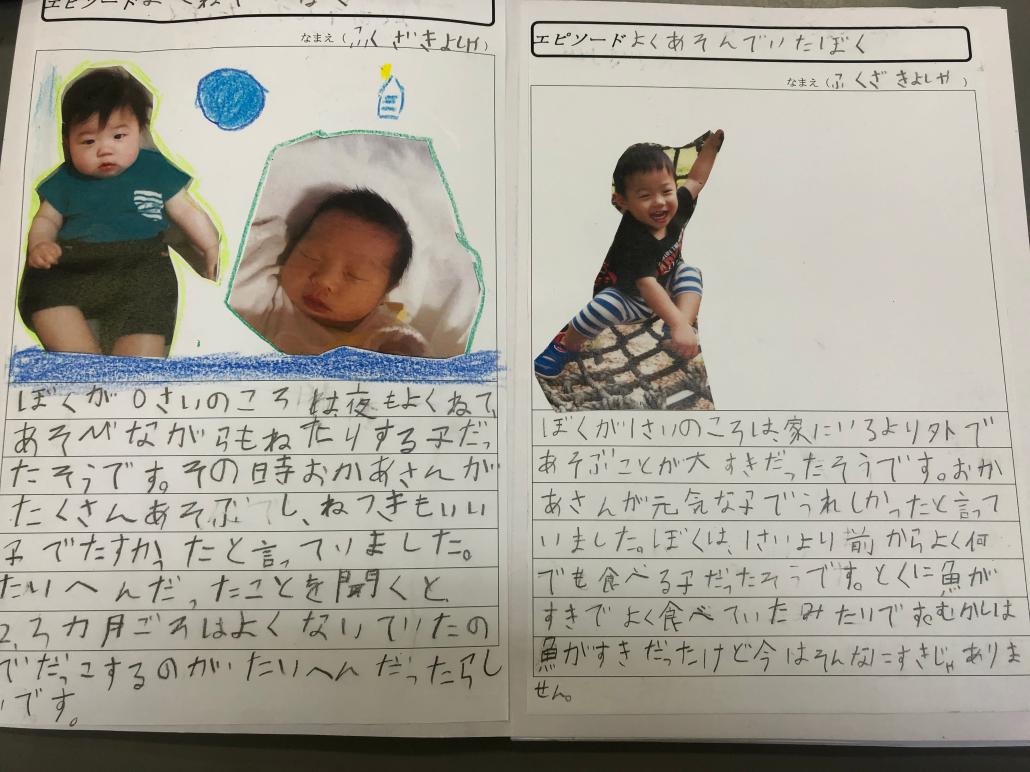 エピソード
なまえ（ふくざきよしや）
ぼくが0さいのころは夜もよくねて、
あそびながらもねたりする子だっ
たそうです。その時おかあさんが
たくさんあそぶし、ねつきもいい
子でたすかったと言っていました。
たいへんだったことを聞くと
2,3カ月ごろはよくないていたの
でだっこするのがたいへんだったらし
いです。
エピソード よくあそんでいたぼく
なまえ（ふくざきよしや）
ぼくが1さいのころは、家にいるより外で
あそぶことが大すきだったそうです。おか
あさんが元気な子でうれしかったと言って
いました。ぼくは、1さいより前からよく何
でも食べる子だったそうです。とくに魚が
すきでよく食べていたみたいです。むかしは
魚がすきだったけど今はそんなにすきじゃありま
せん。